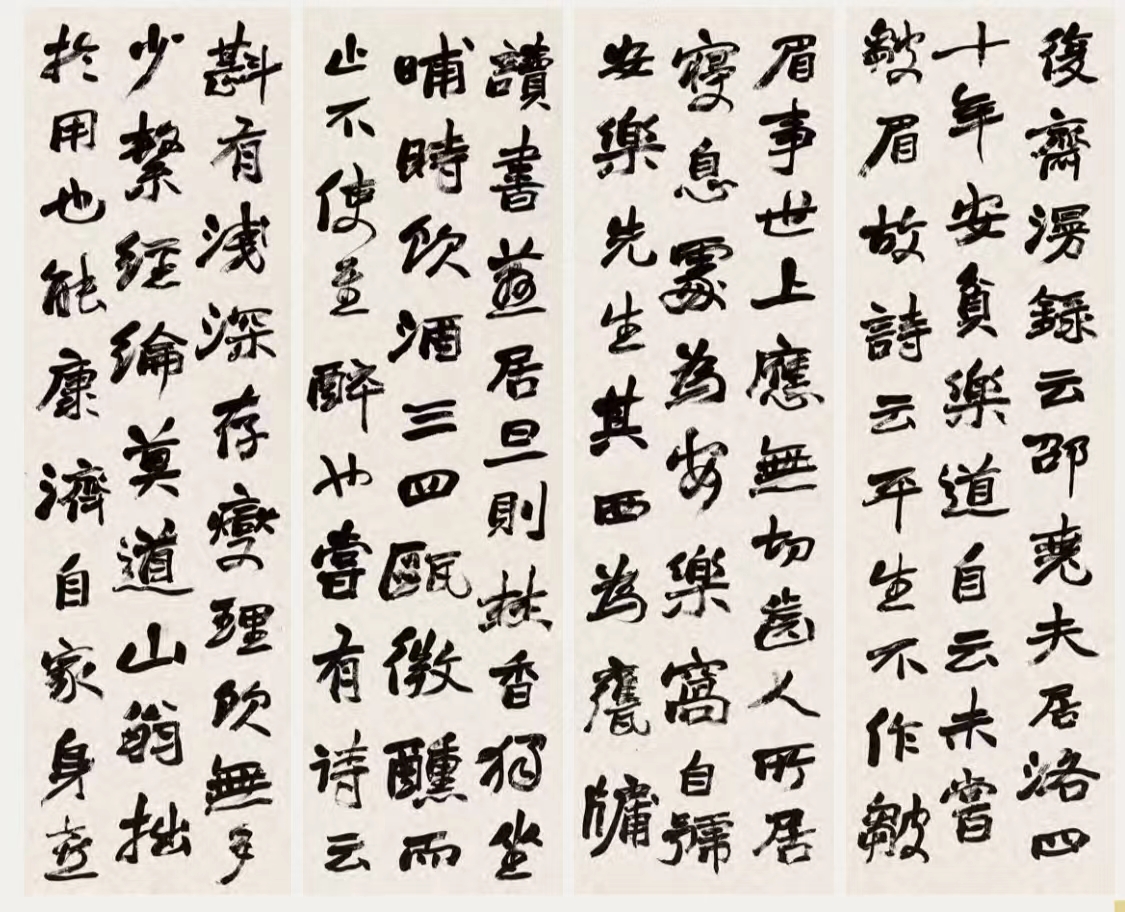 復齋漫錄云邵堯夫居洛四
十年安貧樂道自云未嘗
皺眉故詩云平生不作皺
眉事世上應無切齒人所居
寢息處為安樂窩自號
安樂先生其西為甕牖
讀書燕居旦則焚香獨坐
晡時飲酒三四甌微醺而
止不使至醉也嘗有詩云
斟有淺深存燮理飲無多
少繫經綸莫道山翁拙
於用也能康濟自家身